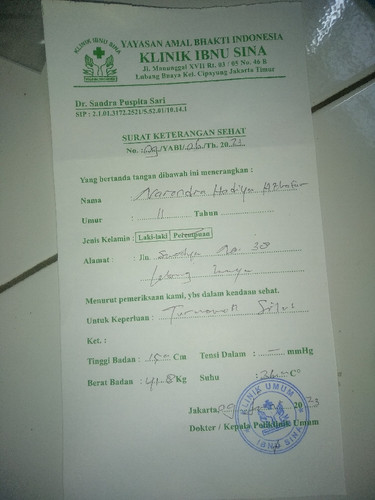 YAYASAN AMAL BHAKTI INDONESIA
KLINIK IBNU SINA
Jl. Manunggal XVII Rt. 03 / 05 No. 46 B
Lubang Buaya Kec. Cipayung Jakarta Timur
Dr. Sandra Puspita Sari
SIP : 2.1.01.3172.2521/S.02.01/10.14.1
SURAT KETERANGAN SEHAT
No. : 09/YABI/06/Th. 2023
Yang bertanda tangan dibawah ini menerangkan :
Nama Narendra
Umur : 11 Tahun
Jenis Kelamin : Laki-laki Perempuan
Alamat : Jln. No. 30
Lubang Buaya
Menurut pemeriksaan kami, ybs dalam kendaan sehat.
Untuk Keperluan : Turnamen Silat
Ket. :
Tinggi Badan : Cm Tensi Dalam : - mmHg
Berat Badan : Kg Suhu : C°
Jakarta, 09 2023
Dokter / Kepala Poliklinik Umum
KLINIK UMUM
IBNU SINA